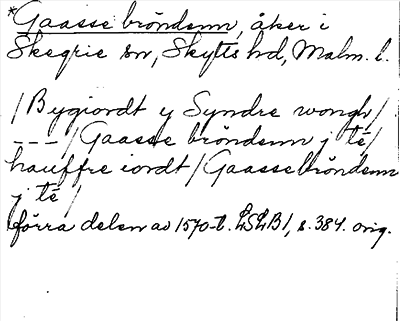 *Gaasse bröndenn, åker i
Skegrie sn, Skytts hd, Malm. l.
/Bygiordt y Syndre wongh/
---/Gaasse bröndenn j té/
hauffre iordt/Gaassebröndenn
j té/
förra delen av 1570-t. LSLB1, s. 384. orig.